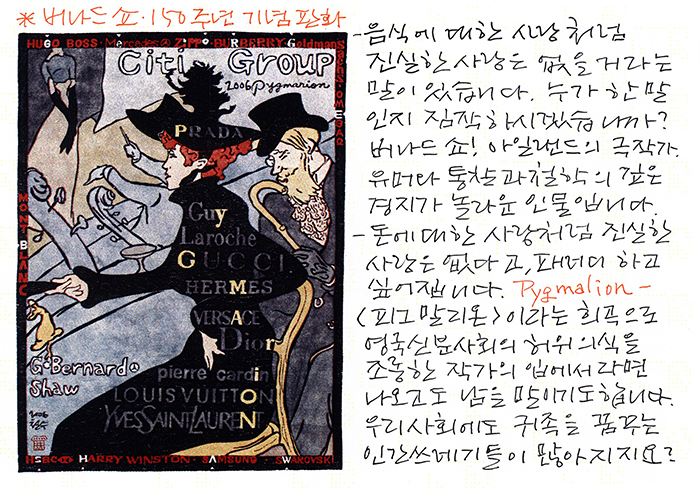 * 버나드 쇼·150주년 기념 판화
HUGO BOSS·Mercedes·ZIPPO·BURBERRY Goldman
Sachs·OMEGA
Citi Group
2006 Pygmarion
PRADA
MONTBLANC
Guy
Laroche
GUCCI
HERMES
VERSACE
Dior
pierre cardin
LOUIS VUITTON
YVES SAINT LAURENT
G·Bernard
Shaw
2006
HSBC HARRY WINSTON·SAMSUNG·SWAROVSKI
-음식에 대한 사랑처럼
진실한 사랑은 없을 거라는
말이 있습니다. 누가 한 말
인지 짐작하시겠습니까?
버나드 쇼! 아일랜드의 극작가.
유머와 통찰과 철학의 깊은
경지가 놀라운 인물입니다.
-돈에 대한 사랑처럼 진실한
사랑은 없다고, 패러디 하고
싶어집니다. Pygmalion-
<피그말리온>이라는 희곡으로
영국신분사회의 허위의식을
조롱한 작가의 입에서라면
나오고도 남을 말이기도합니다.
우리사회에도 귀족을 꿈꾸는
인간쓰레기들이 많아지지요?